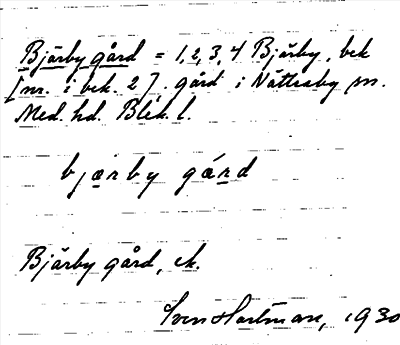 Bjärby gård = 1, 2, 3, 4 Bjärby, bek
[nr. i bek. 2]. gård i Nättraby sn.
Med. hd. Blek. l.
bjærby gård
Bjärby gård, ek.
Sven Hartman, 1930